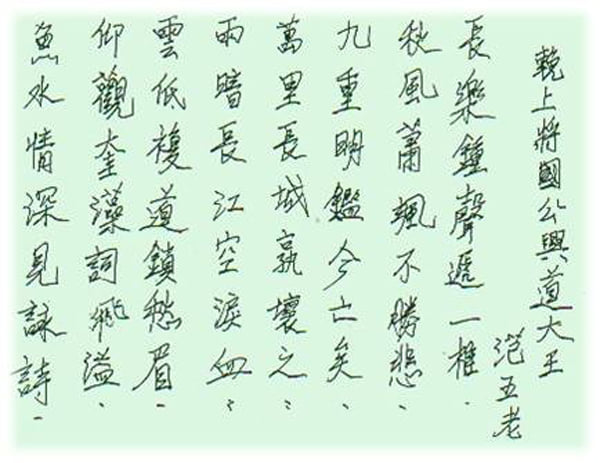 輓上將國公興道大王
范五老
長樂鍾聲遞一椎.
秋風蕭颯不勝悲、
九重明鑑今亡矣、
萬里長城孰壞之:
雨暗長江空淚血:
雲低複道鎖愁眉、
仰觀奎藻詞飛溢、
魚水情深見詠詩、